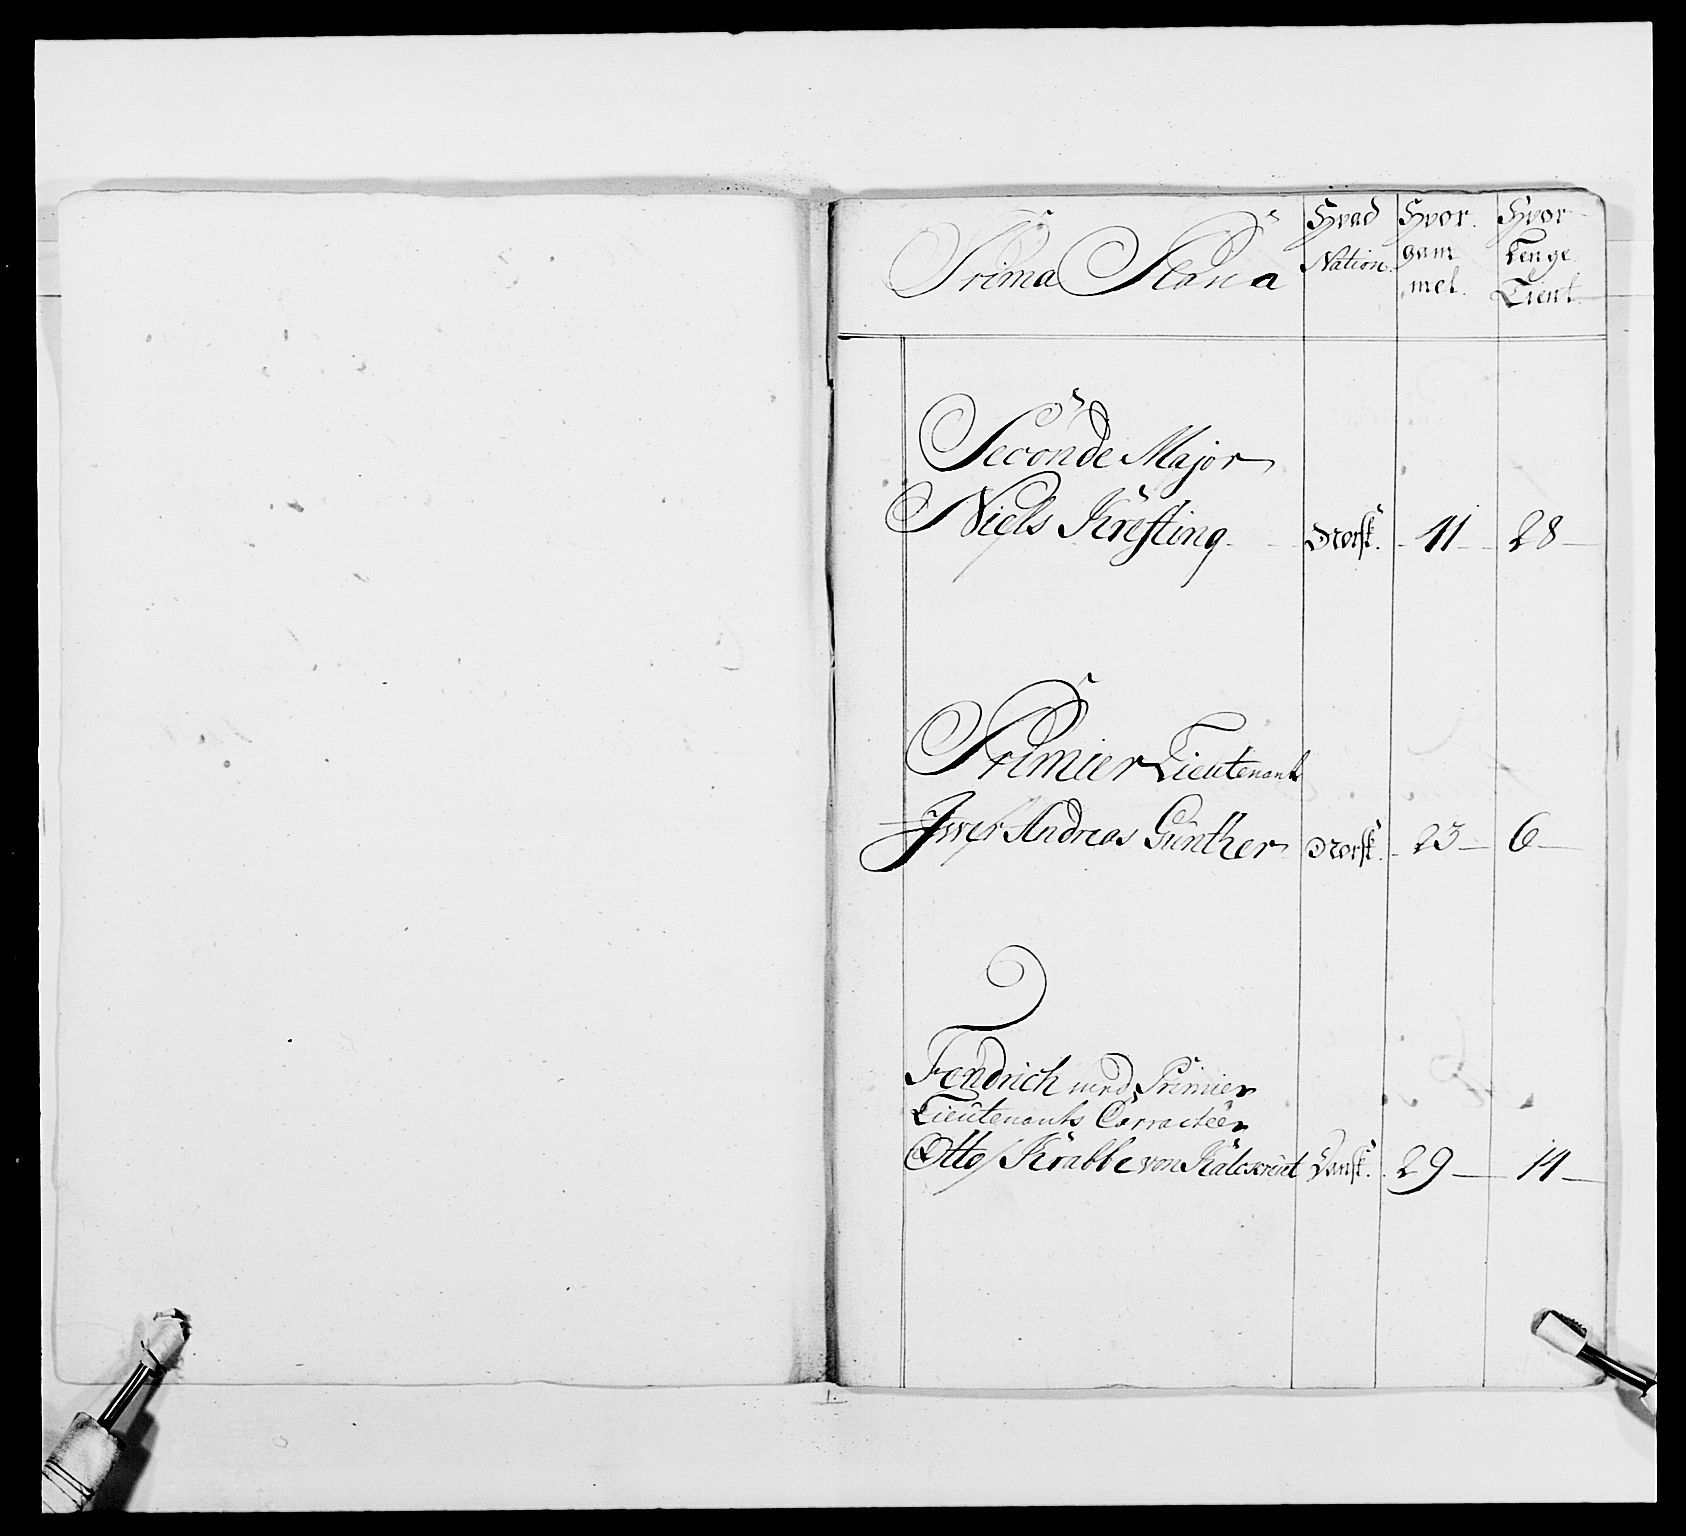 Prima Plana
Hvad
Nation.
Hvor
gam
mel.
Hvor
Lenge
Tient.
Seconde Major
Niels Krefting Norsk. 41 28
Premier Lieutenant
Iwer Andreas Günther Norsk. 23 6
Fendrich med Premier
Lieutenants Carracteer
Otto Krabbe von Dansk. 29 14